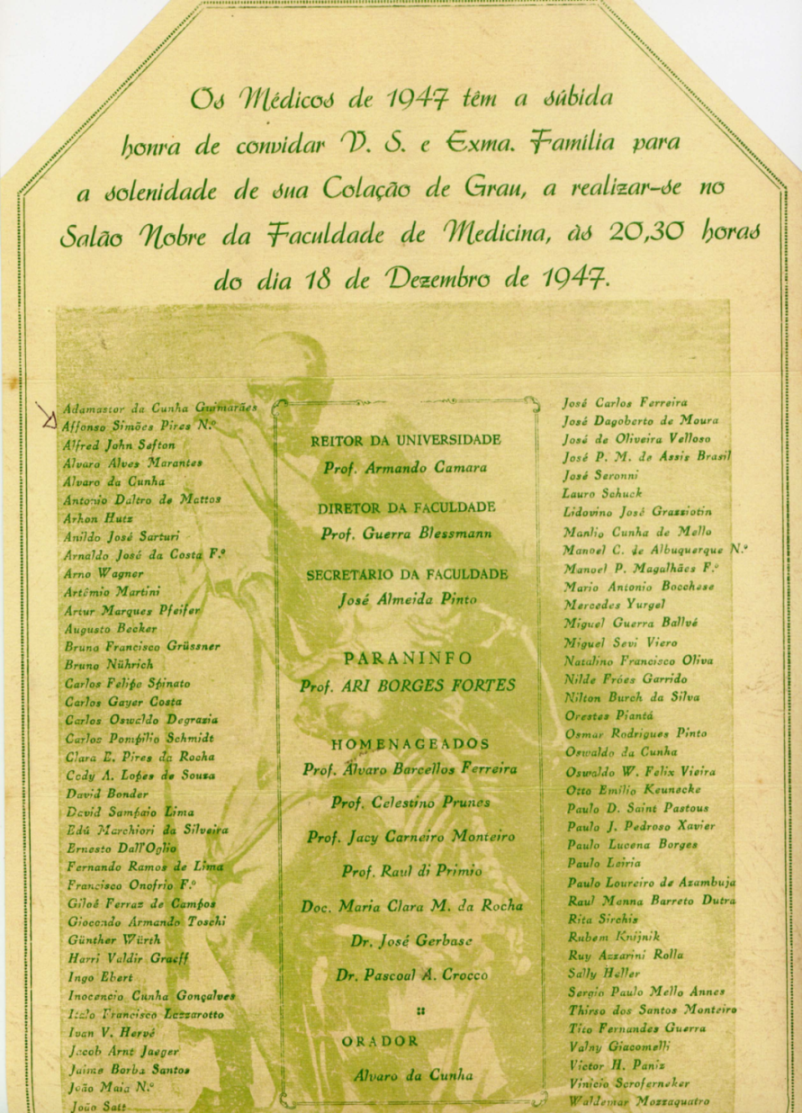 Os Médicos de 1947 têm a súbida
honra de convidar V. S. e Exma. Família para
a solenidade de sua Colação de Grau, a realizar-se no
Salão Nobre da Faculdade de Medicina, às 20,30 horas
do dia 18 de Dezembro de 1947.
Adamastor da Cunha Guimarães
Affonso Simões Pires N.º
Alfred John Sefton
Alvaro Alves Marantes
Alvaro da Cunha
Antonio Daltro de Mattos
Arhon Hutz
Anildo José Sarturi
Arnaldo José da Costa F.º
Arno Wagner
Artêmio Martini
Artur Marques Pfeifer
Augusto Becker
Bruno Francisco Grüssner
Bruno Nührich
Carlos Felipe Spinato
Carlos Gayer Costa
Carlos Oswaldo Degrazia
Carlos Pompílio Schmidt
Clara E. Pires da Rocha
Cedy A. Lopes de Sousa
David Bonder
David Sampaio Lima
Edú Marchiori da Silveira
Ernesto Dall'Oglio
Fernando Ramos de Lima
Francisco Onofrio F.º
Giloé Ferraz de Campos
Giocondo Armando Toschi
Günther Würth
Harri Valdir Graeff
Ingo Ebert
Inocencio Cunha Gonçalves
Italo Francisco Lazzarotto
Ivan V. Hervé
Jacob Arnt Jaeger
Jaime Borba Santos
João Maia N.º
João Satt
REITOR DA UNIVERSIDADE
Prof. Armando Camara
DIRETOR DA FACULDADE
Prof. Guerra Blessmann
SECRETARIO DA FACULDADE
José Almeida Pinto
PARANINFO
Prof. ARI BORGES FORTES
HOMENAGEADOS
Prof. Álvaro Barcellos Ferreira
Prof. Celestino Prunes
Prof. Jacy Carneiro Monteiro
Prof. Raul di Primio
Doc. Maria Clara M. da Rocha
Dr. José Gerbase
Dr. Pascoal A. Crocco
ORADOR
Alvaro da Cunha
José Carlos Ferreira
José Dagoberto de Moura
José de Oliveira Velloso
José P. M. de Assis Brasil
José Seronni
Lauro Schuck
Lidovino José Grazziotin
Manlio Cunha de Mello
Manoel C. de Albuquerque N.º
Manoel P. Magalhães F.º
Mario Antonio Bocchese
Mercedes Yurgel
Miguel Guerra Ballvé
Miguel Sevi Viero
Natalino Francisco Oliva
Nilde Fróes Garrido
Nilton Burch da Silva
Orestes Piantá
Osmar Rodrigues Pinto
Oswaldo da Cunha
Oswaldo W. Felix Vieira
Otto Emilio Keunecke
Paulo D. Saint Pastous
Paulo J. Pedroso Xavier
Paulo Lucena Borges
Paulo Leiria
Paulo Loureiro de Azambuja
Raul Menna Barreto Dutra
Rita Sirchis
Rubem Knijnik
Ruy Azzarini Rolla
Sally Heller
Sergio Paulo Mello Annes
Thirso dos Santos Monteiro
Tito Fernandes Guerra
Valny Giacomelli
Victor H. Paniz
Vinicio Scroferneker
Waldemar Mozzaquatro